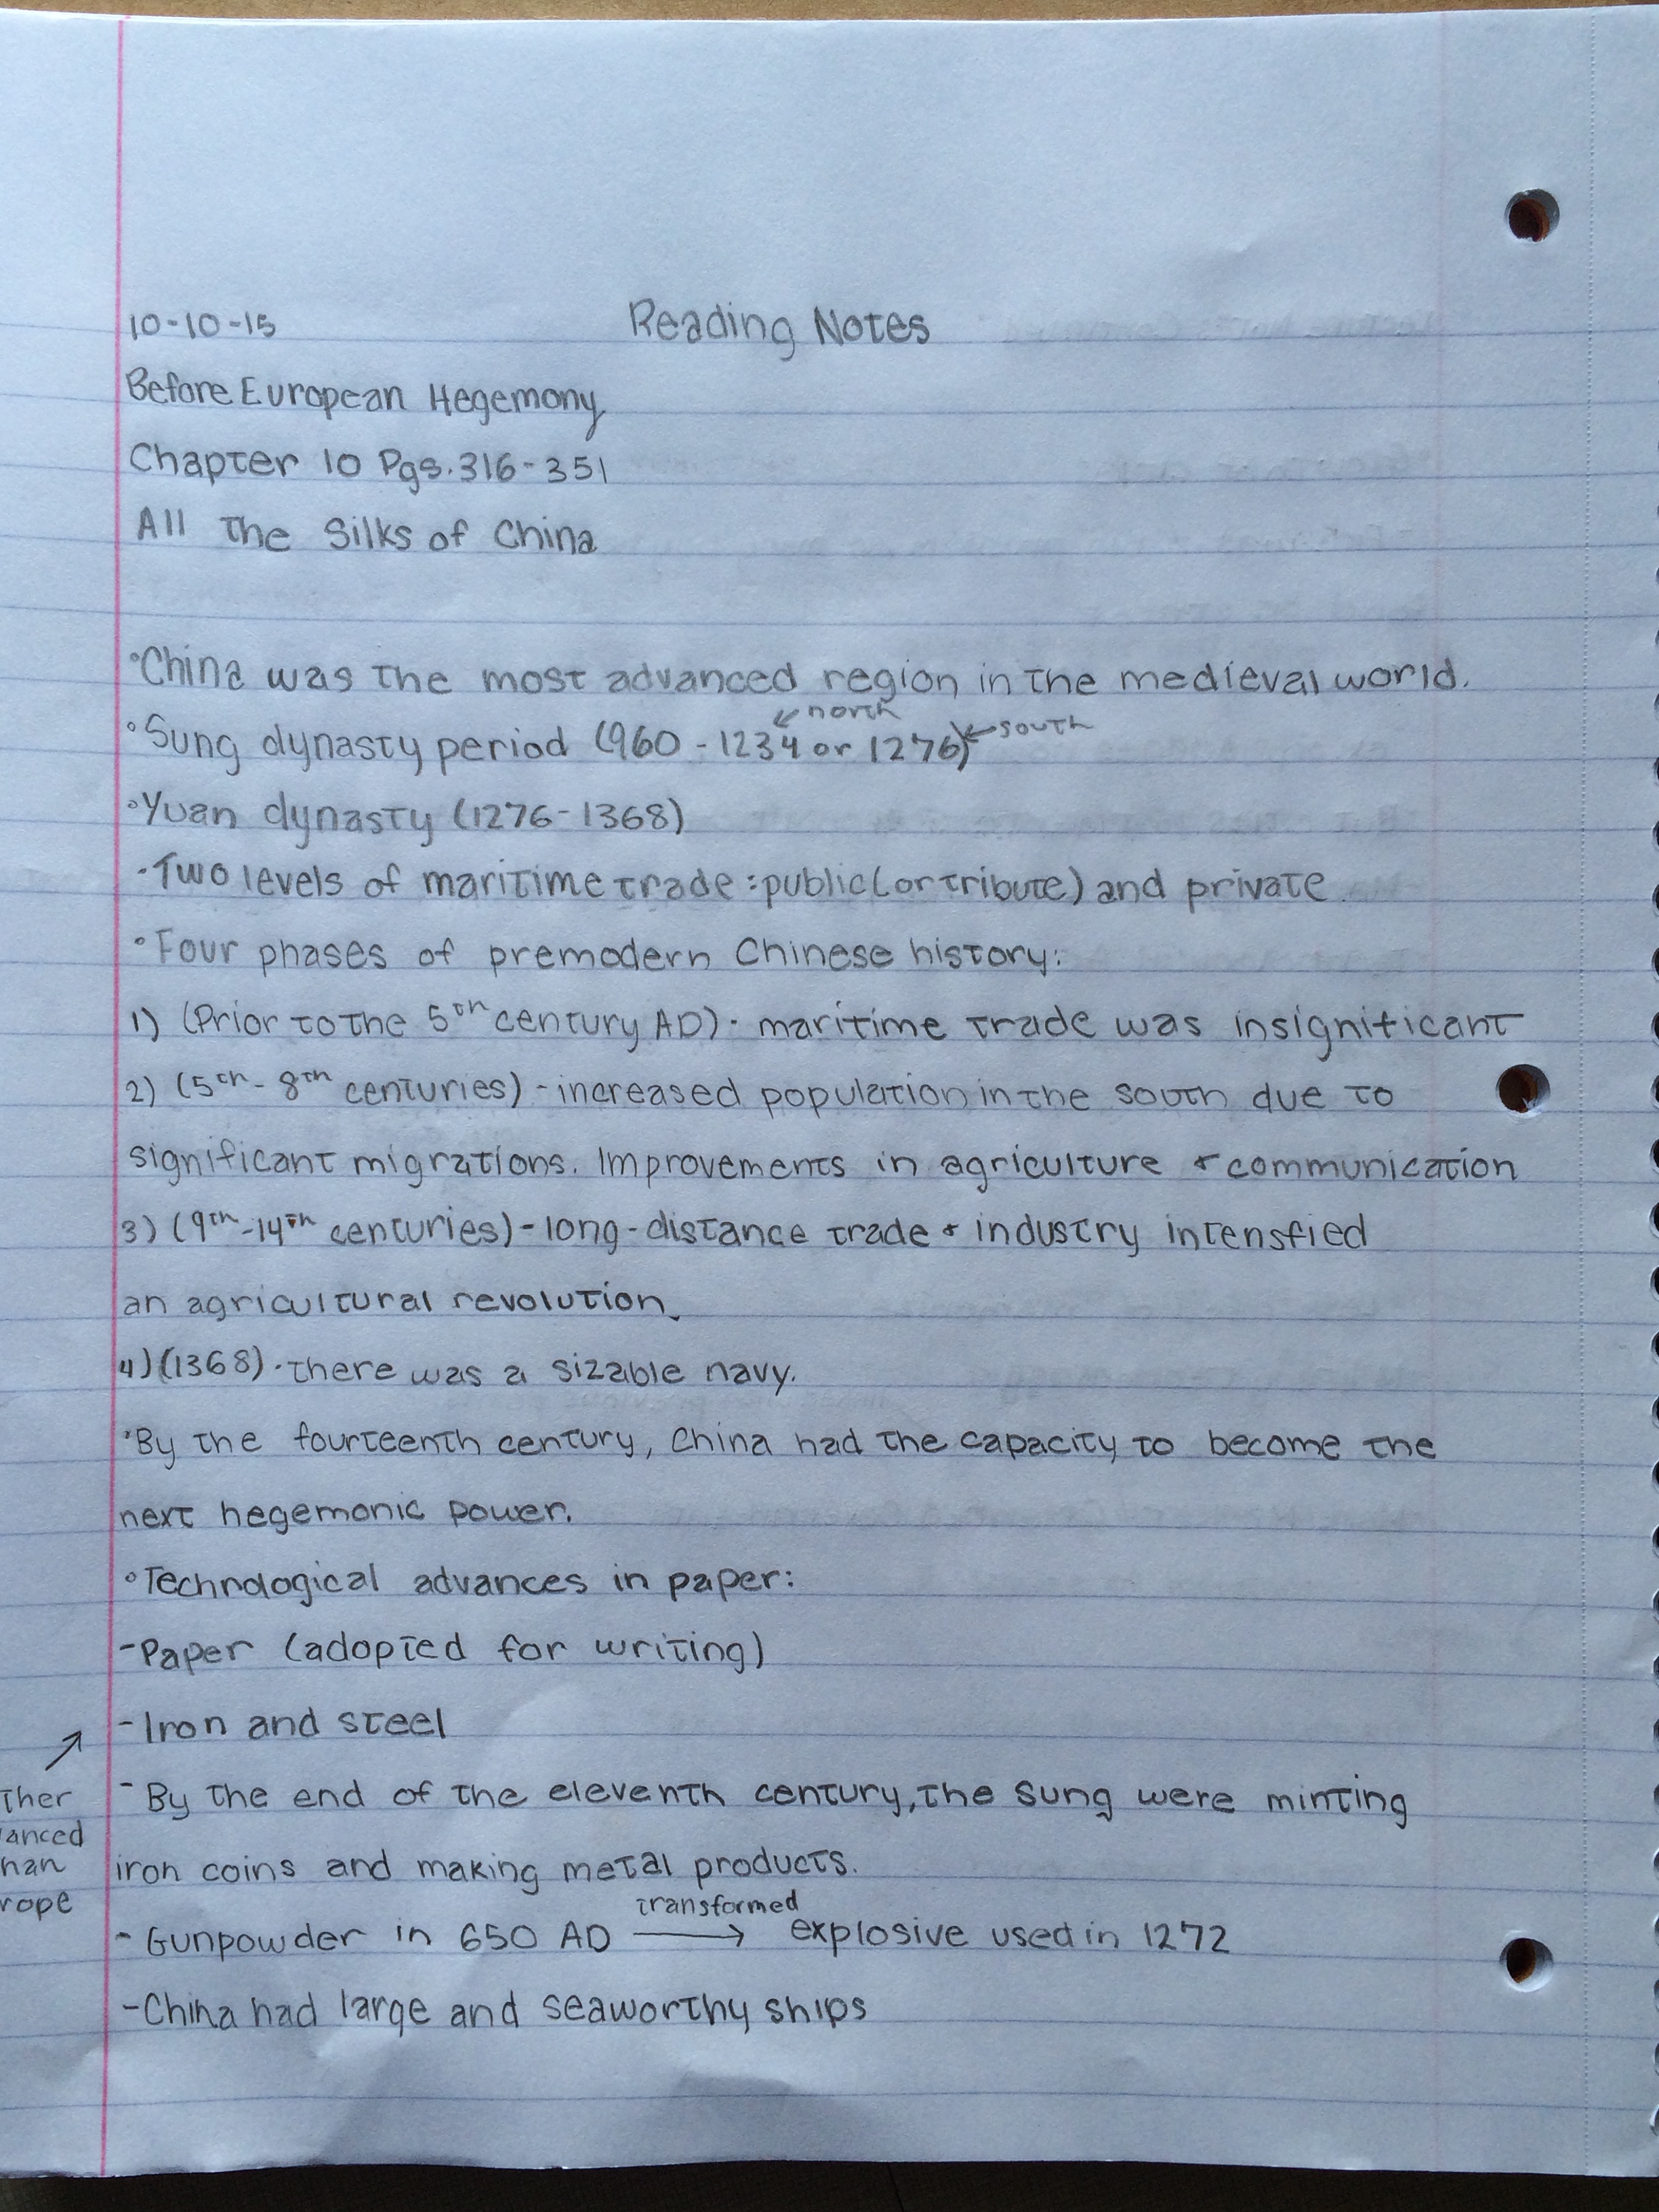 10-10-15 Reading Notes
Before European Hegemony
Chapter 10 Pgs. 316-351
All the Silks of China
°China was the most advanced region in the medieval world.
↙north
°Sung dynasty period (960 - 1234 or 1276) ←south
°Yuan dynasty (1276-1368)
-Two levels of maritime trade: public (or tribute) and private
°Four phases of premodern Chinese history:
1) (Prior to the 5th century AD) - maritime trade was insignificant
2) (5th - 8th centuries) - increased population in the south due to
significant migrations. Improvements in agriculture & communication
3) (9th-14th centuries) - long-distance trade & industry intensfied
an agricultural revolution.
4) (1368) - there was a sizable navy.
°By the fourteenth century, China had the capacity to become the
next hegemonic power.
°Technological advances in paper:
-Paper (adopted for writing)
-Iron and steel
↗
ther
anced
han
rope
-By the end of the eleventh century, the Sung were minting
iron coins and making metal products.
transformed
-Gunpowder in 650 AD → explosive used in 1272
-China had large and seaworthy ships